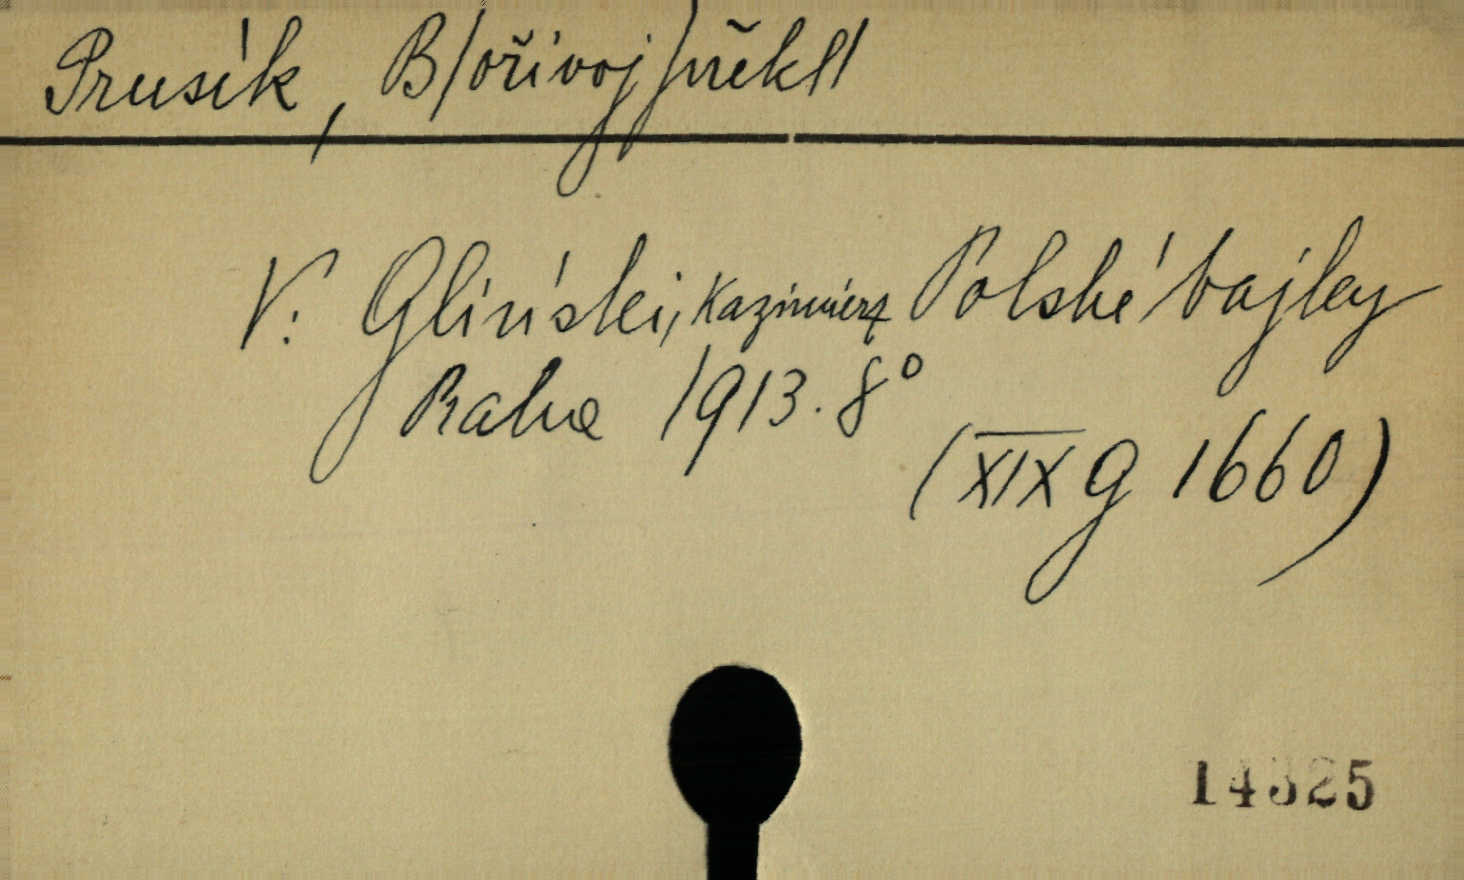 Prusík, B/ořivoj/překl/
V: Gliński, Kazimierz Polské bajky
Praha 1913. 8°
(XIX G 1660)
14325